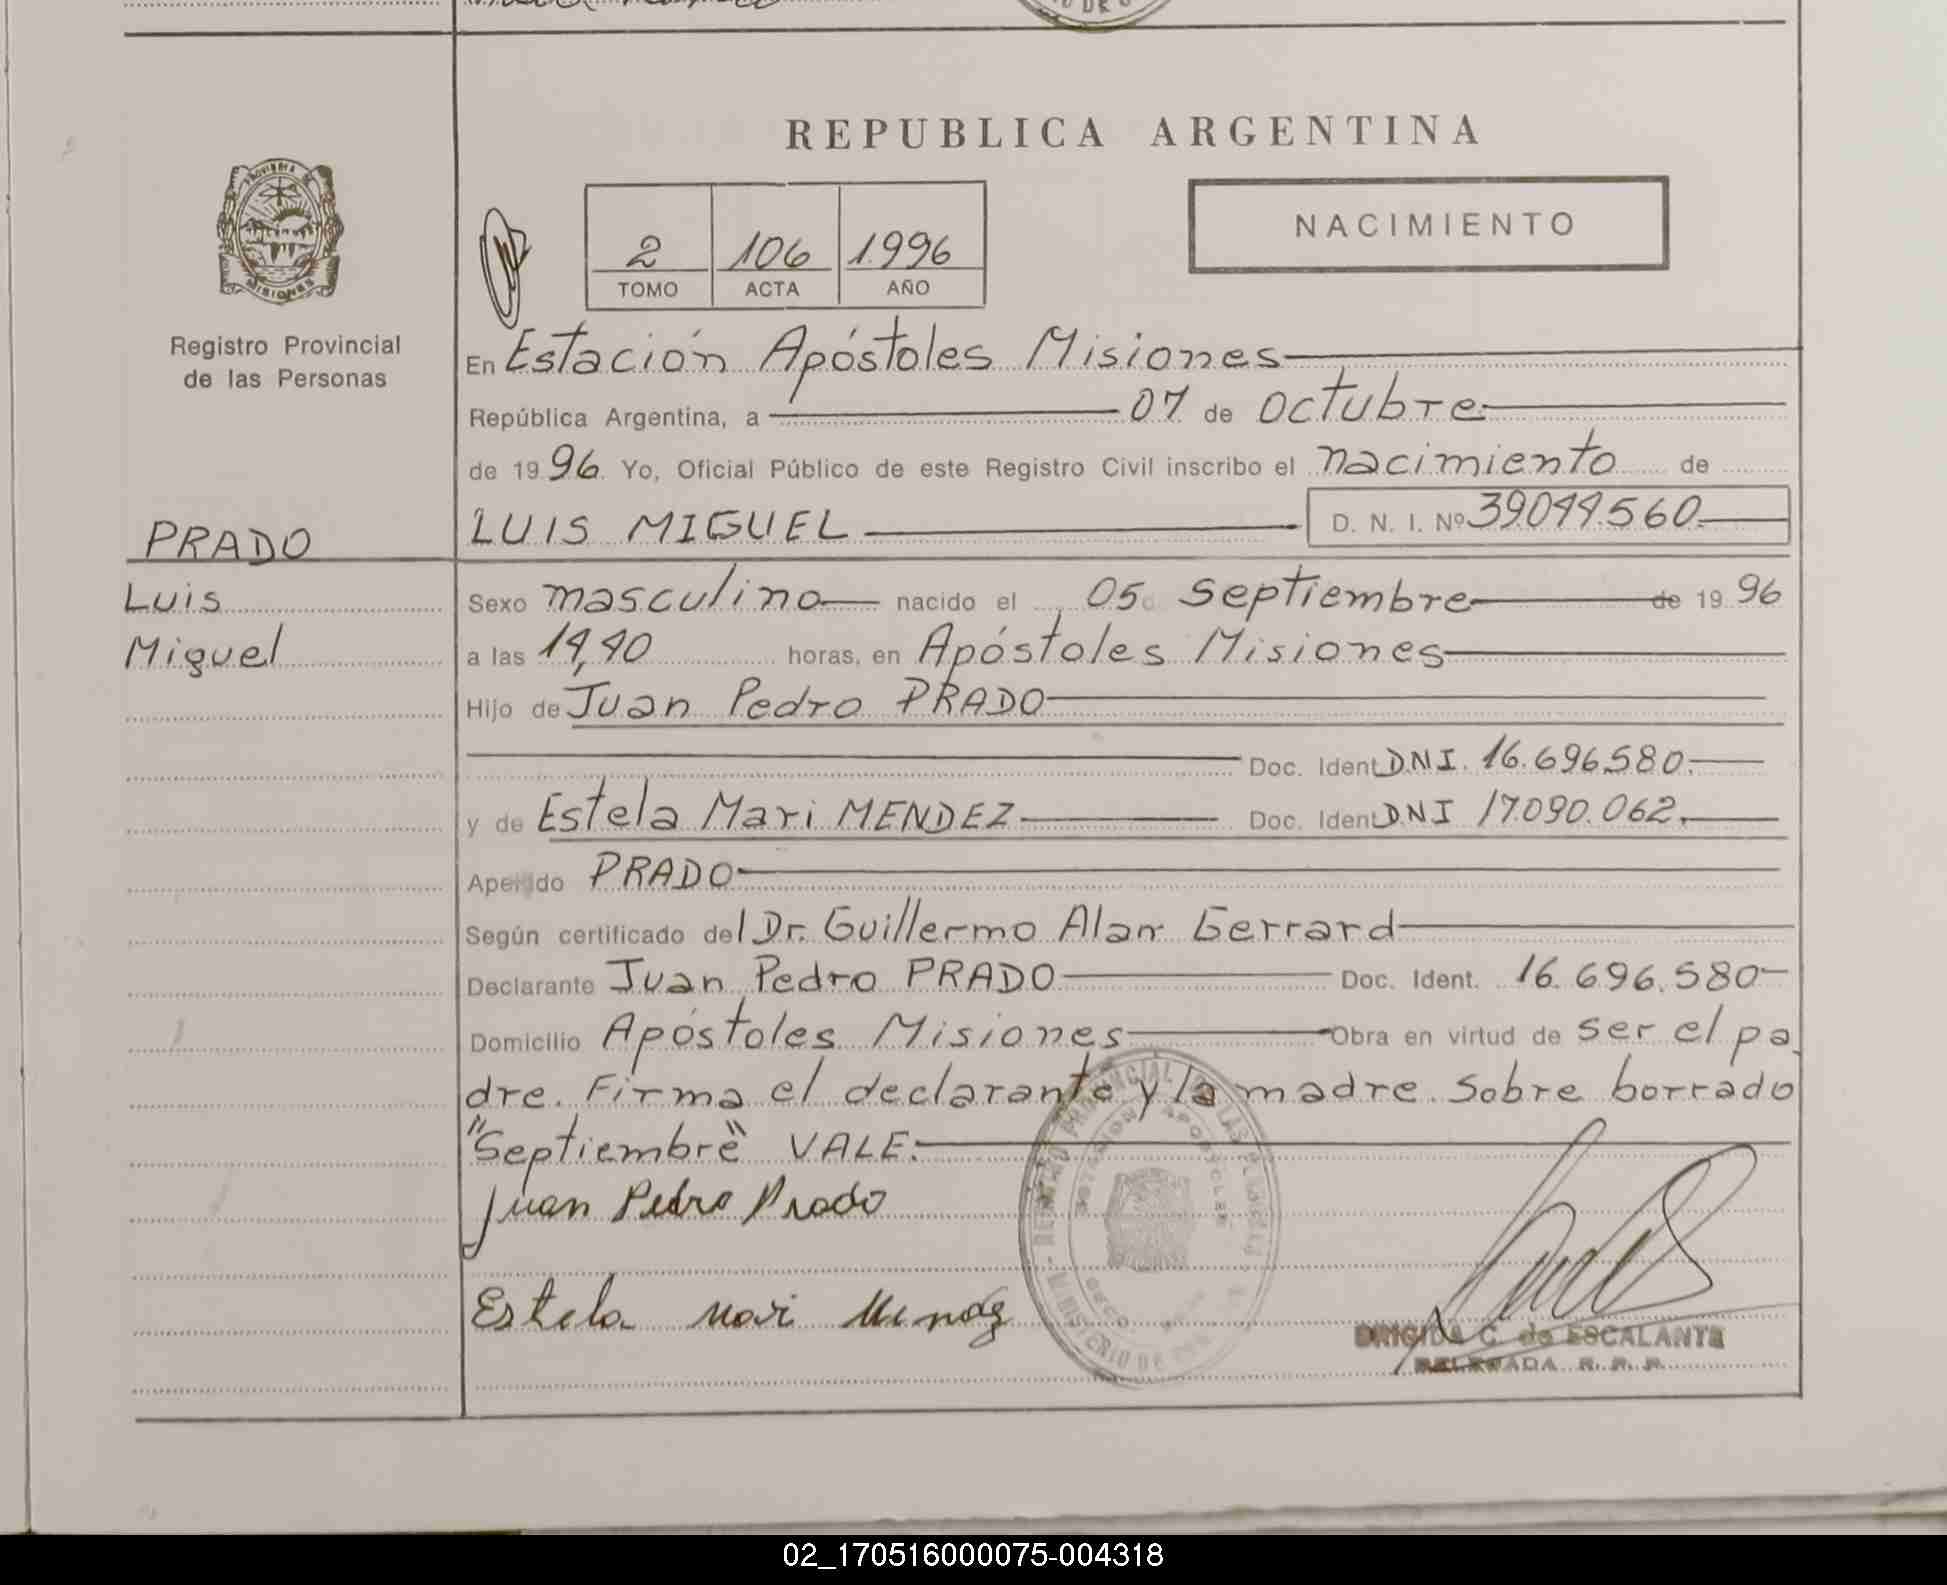 REPUBLICA ARGENTINA
PROVINCIA DE
MISIONES
Registro Provincial
de las Personas
2 106 1.996
TOMO ACTA AÑO
NACIMIENTO
En Estación Apóstoles Misiones
República Argentina, a 07 de octubre
de 19 96. Yo, Oficial Público de este Registro Civil inscribo el nacimiento de
PRADO
Luis
Miguel
LUIS MIGUEL D. N. I. Nº 39.044.560
Sexo masculino nacido el 05 septiembre de 19 96
a las 14,40 horas, en Apóstoles Misiones
Hijo de Juan Pedro PRADO
Doc. Ident DNI. 16.696.580.
y de Estela Mari MENDEZ Doc. Ident DNI 17.090.062.
Apellido PRADO
Según certificado del Dr. Guillermo Alan Gerrard
Declarante Juan Pedro PRADO Doc. Ident. 16.696.580
Domicilio Apóstoles Misiones Obra en virtud de ser el pa
dre. Firma el declarante y la madre. Sobre borrado
"Septiembre" VALE.
Juan Pedro Prado
Estela Mari Mendez
C. de ESCALANTE
DELEGADA R. P. P.
02_170516000075-004318